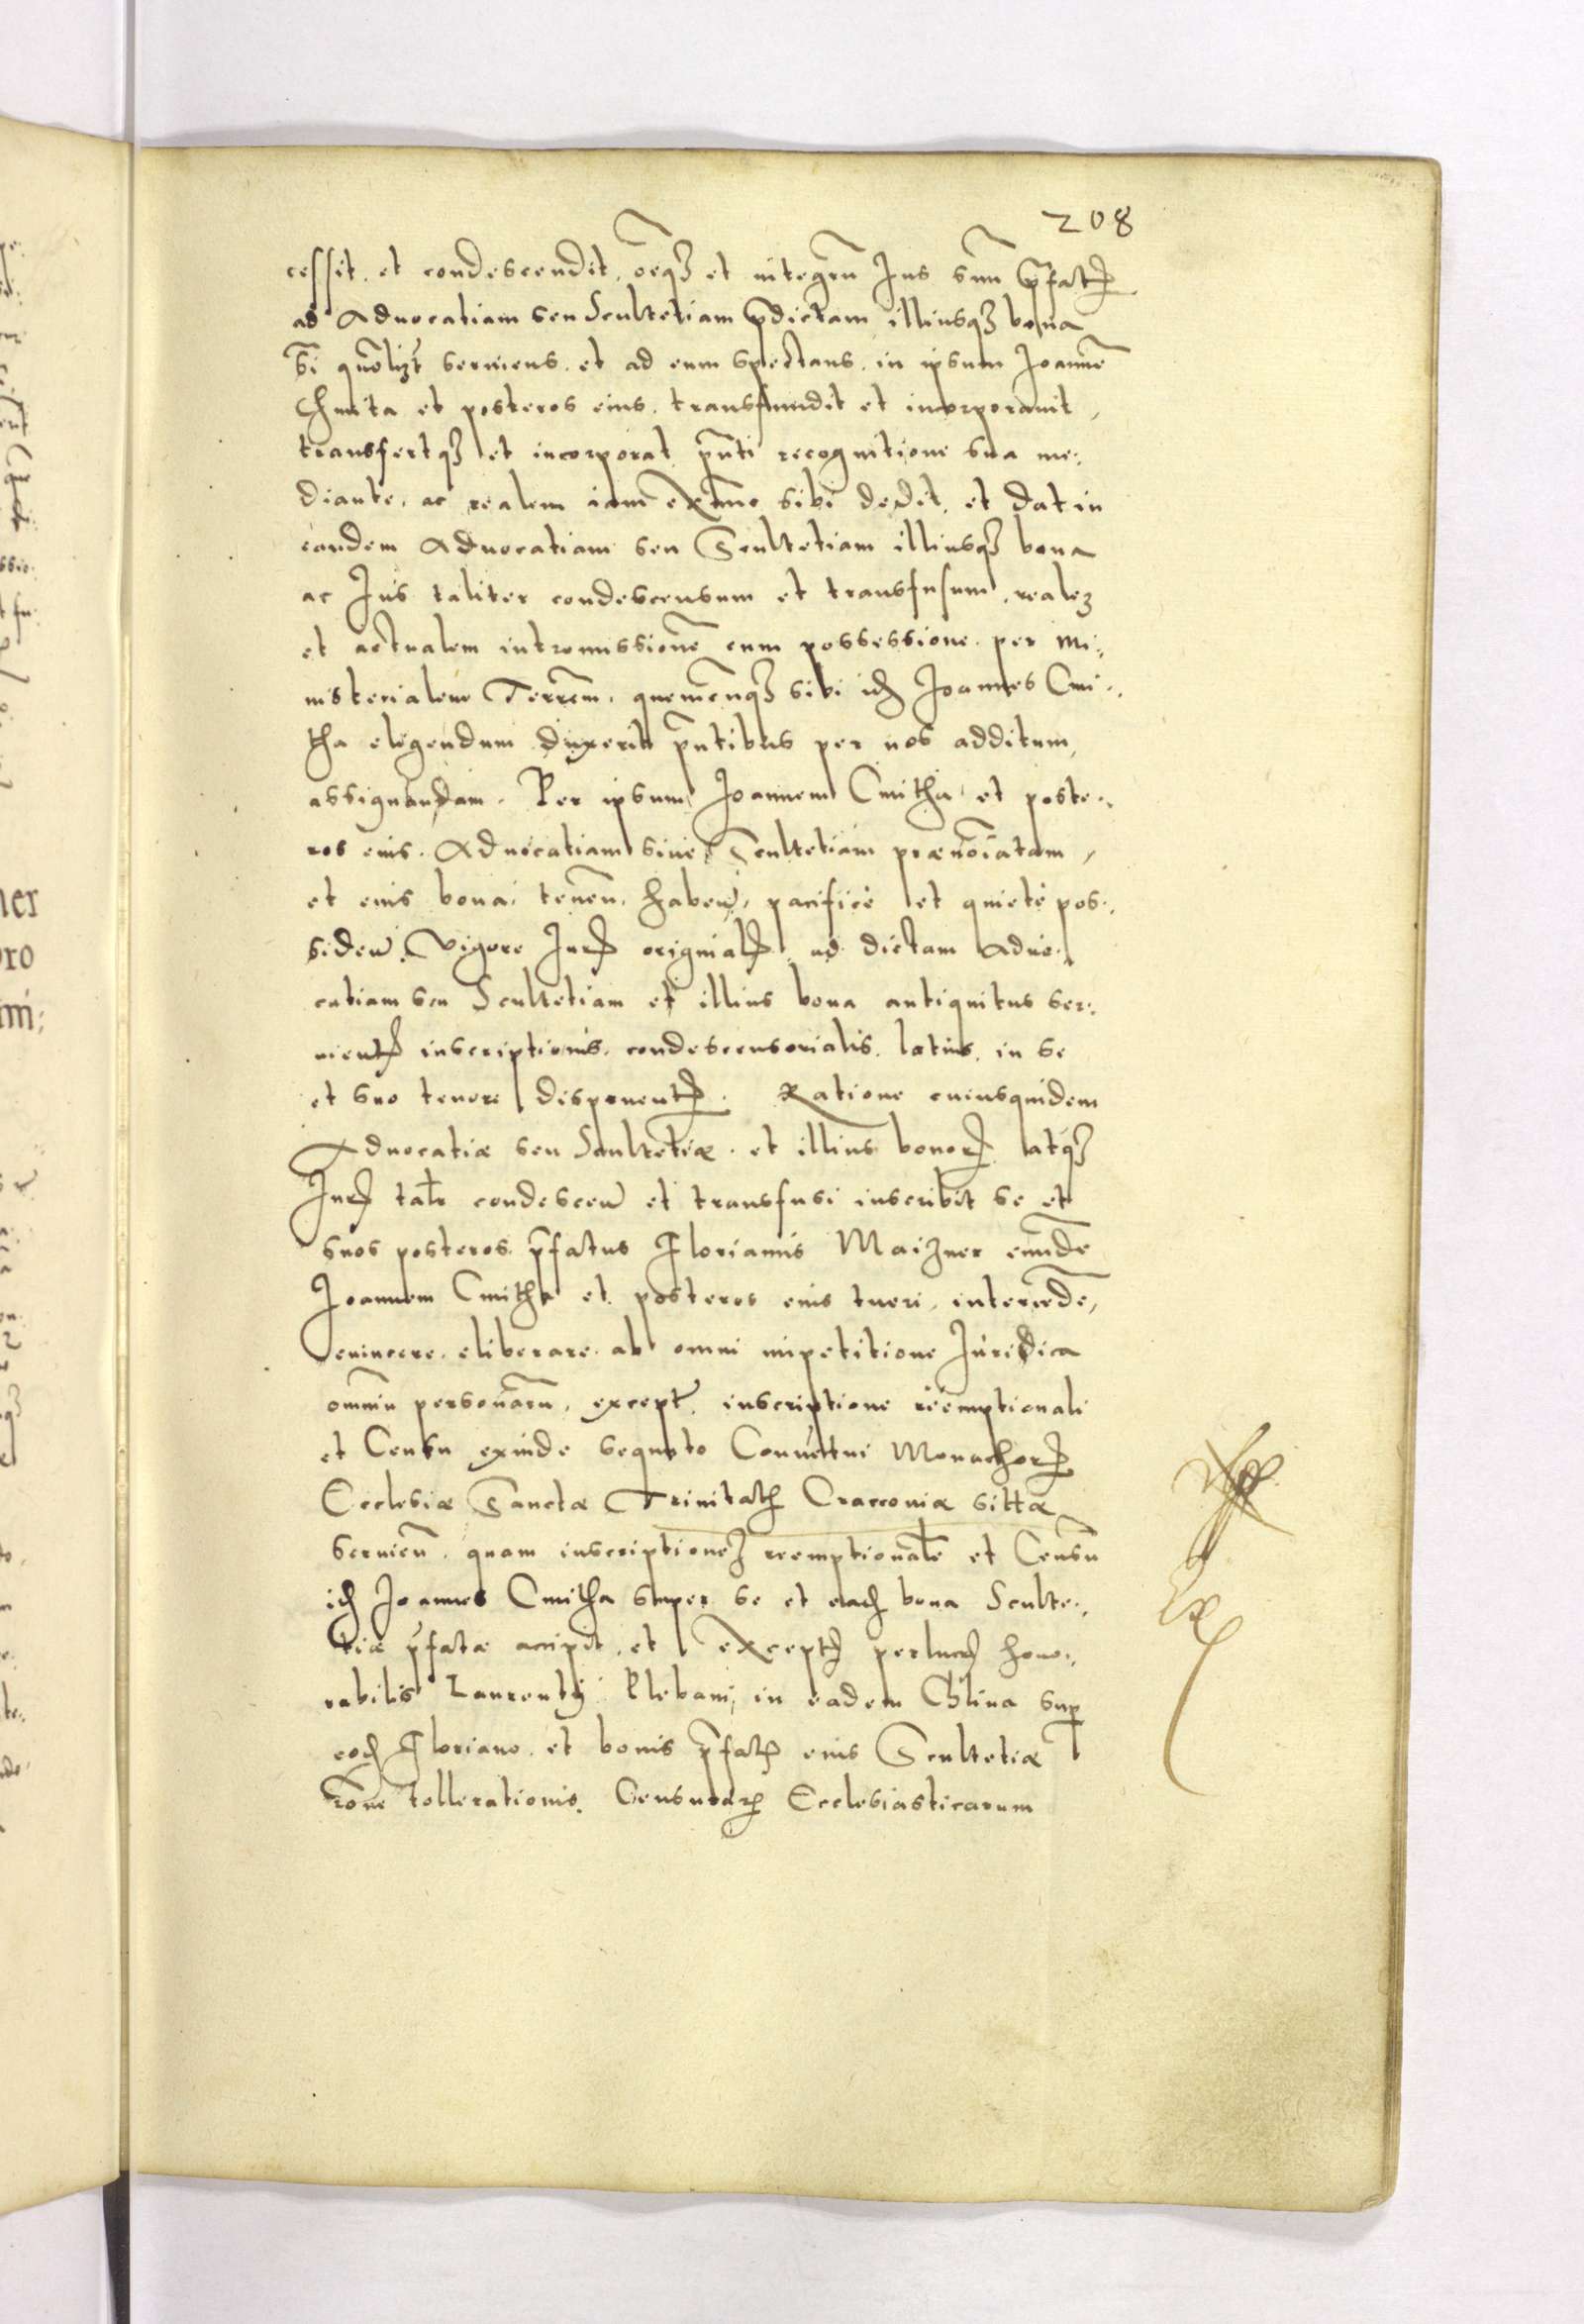 208
cessit. et condescendit, oēqꝫ et integrū Ius suū p̄fatꝭ
ad Aduocatiam seu Scultetiam p̄dictam illiusqꝫ bona
si quōlibet seruiens. et ad eum spectans. in ipsum Joannē
Chmita et posteros eius. transfundit et incorporauit,
transfertqꝫ et incorporat p̄nti recognitione sua me:
diante, ac realem iam ex tūnc sibi dedit, et dat in
eandem Aduocatiam seu Scultetiam illiusqꝫ bona
ac Ius taliter condescensum et transfusum, realeꝫ
et actualem intromissionē cum possessione per Mi:
nisterialem Terrēm, quemcūnqꝫ sibi idꝫ Joannes Cmi:
tha eligendum duxerit p̄ntibus per nos additum,
assignandam. Per ipsum Joannem Cmitha et poste:
ros eius. Aduocatiam siue Scultetiam prænoīatam,
et eius bona, tenēn, haben, pacificè et quietè pos:
siden, vigore Iurꝭ originalꝭ ad dictam Aduo:
catiam seu Scultetiam et illius bona antiquitus ser:
uientꝭ inscriptionis, condescensorialis, latius, in se
et suo tenore disponentꝭ. Ratione cuiusquidem
Aduocatiæ seu Scultetiæ. et illius bonorꝭ atqꝫ
Iurꝭ talr̄ condescen et transfusi inscribit se et
suos posteros p̄fatus Florianus Maizner eundē
Joannem Cmitha et posteros eius tueri, intercedē,
euincere, eliberare. ab omni impetitione Iuridica
omniū personarū, exceptꝭ inscriptione reemptionali
et Censu exinde sequuto Conuentui Monachorꝭ
Ecclesiæ Sanctæ Trinitatꝭ Cracouiæ sittæ
seruien̄. quam inscriptioneꝫ reemptionalē et Censū
idꝫ Joannes Cmitha super se et eadꝫ bona Sculte:
tiæ p̄fatæ accipit, et exceptꝭ perlucrꝭ hono:
rabilis Laurentij Plebani, in eadem Chlina sup
eodꝫ Floriano et bonis p̄fatꝭ eius Scultetiæ
rōne tollerationis Censurarꝭ Ecclesiasticarum